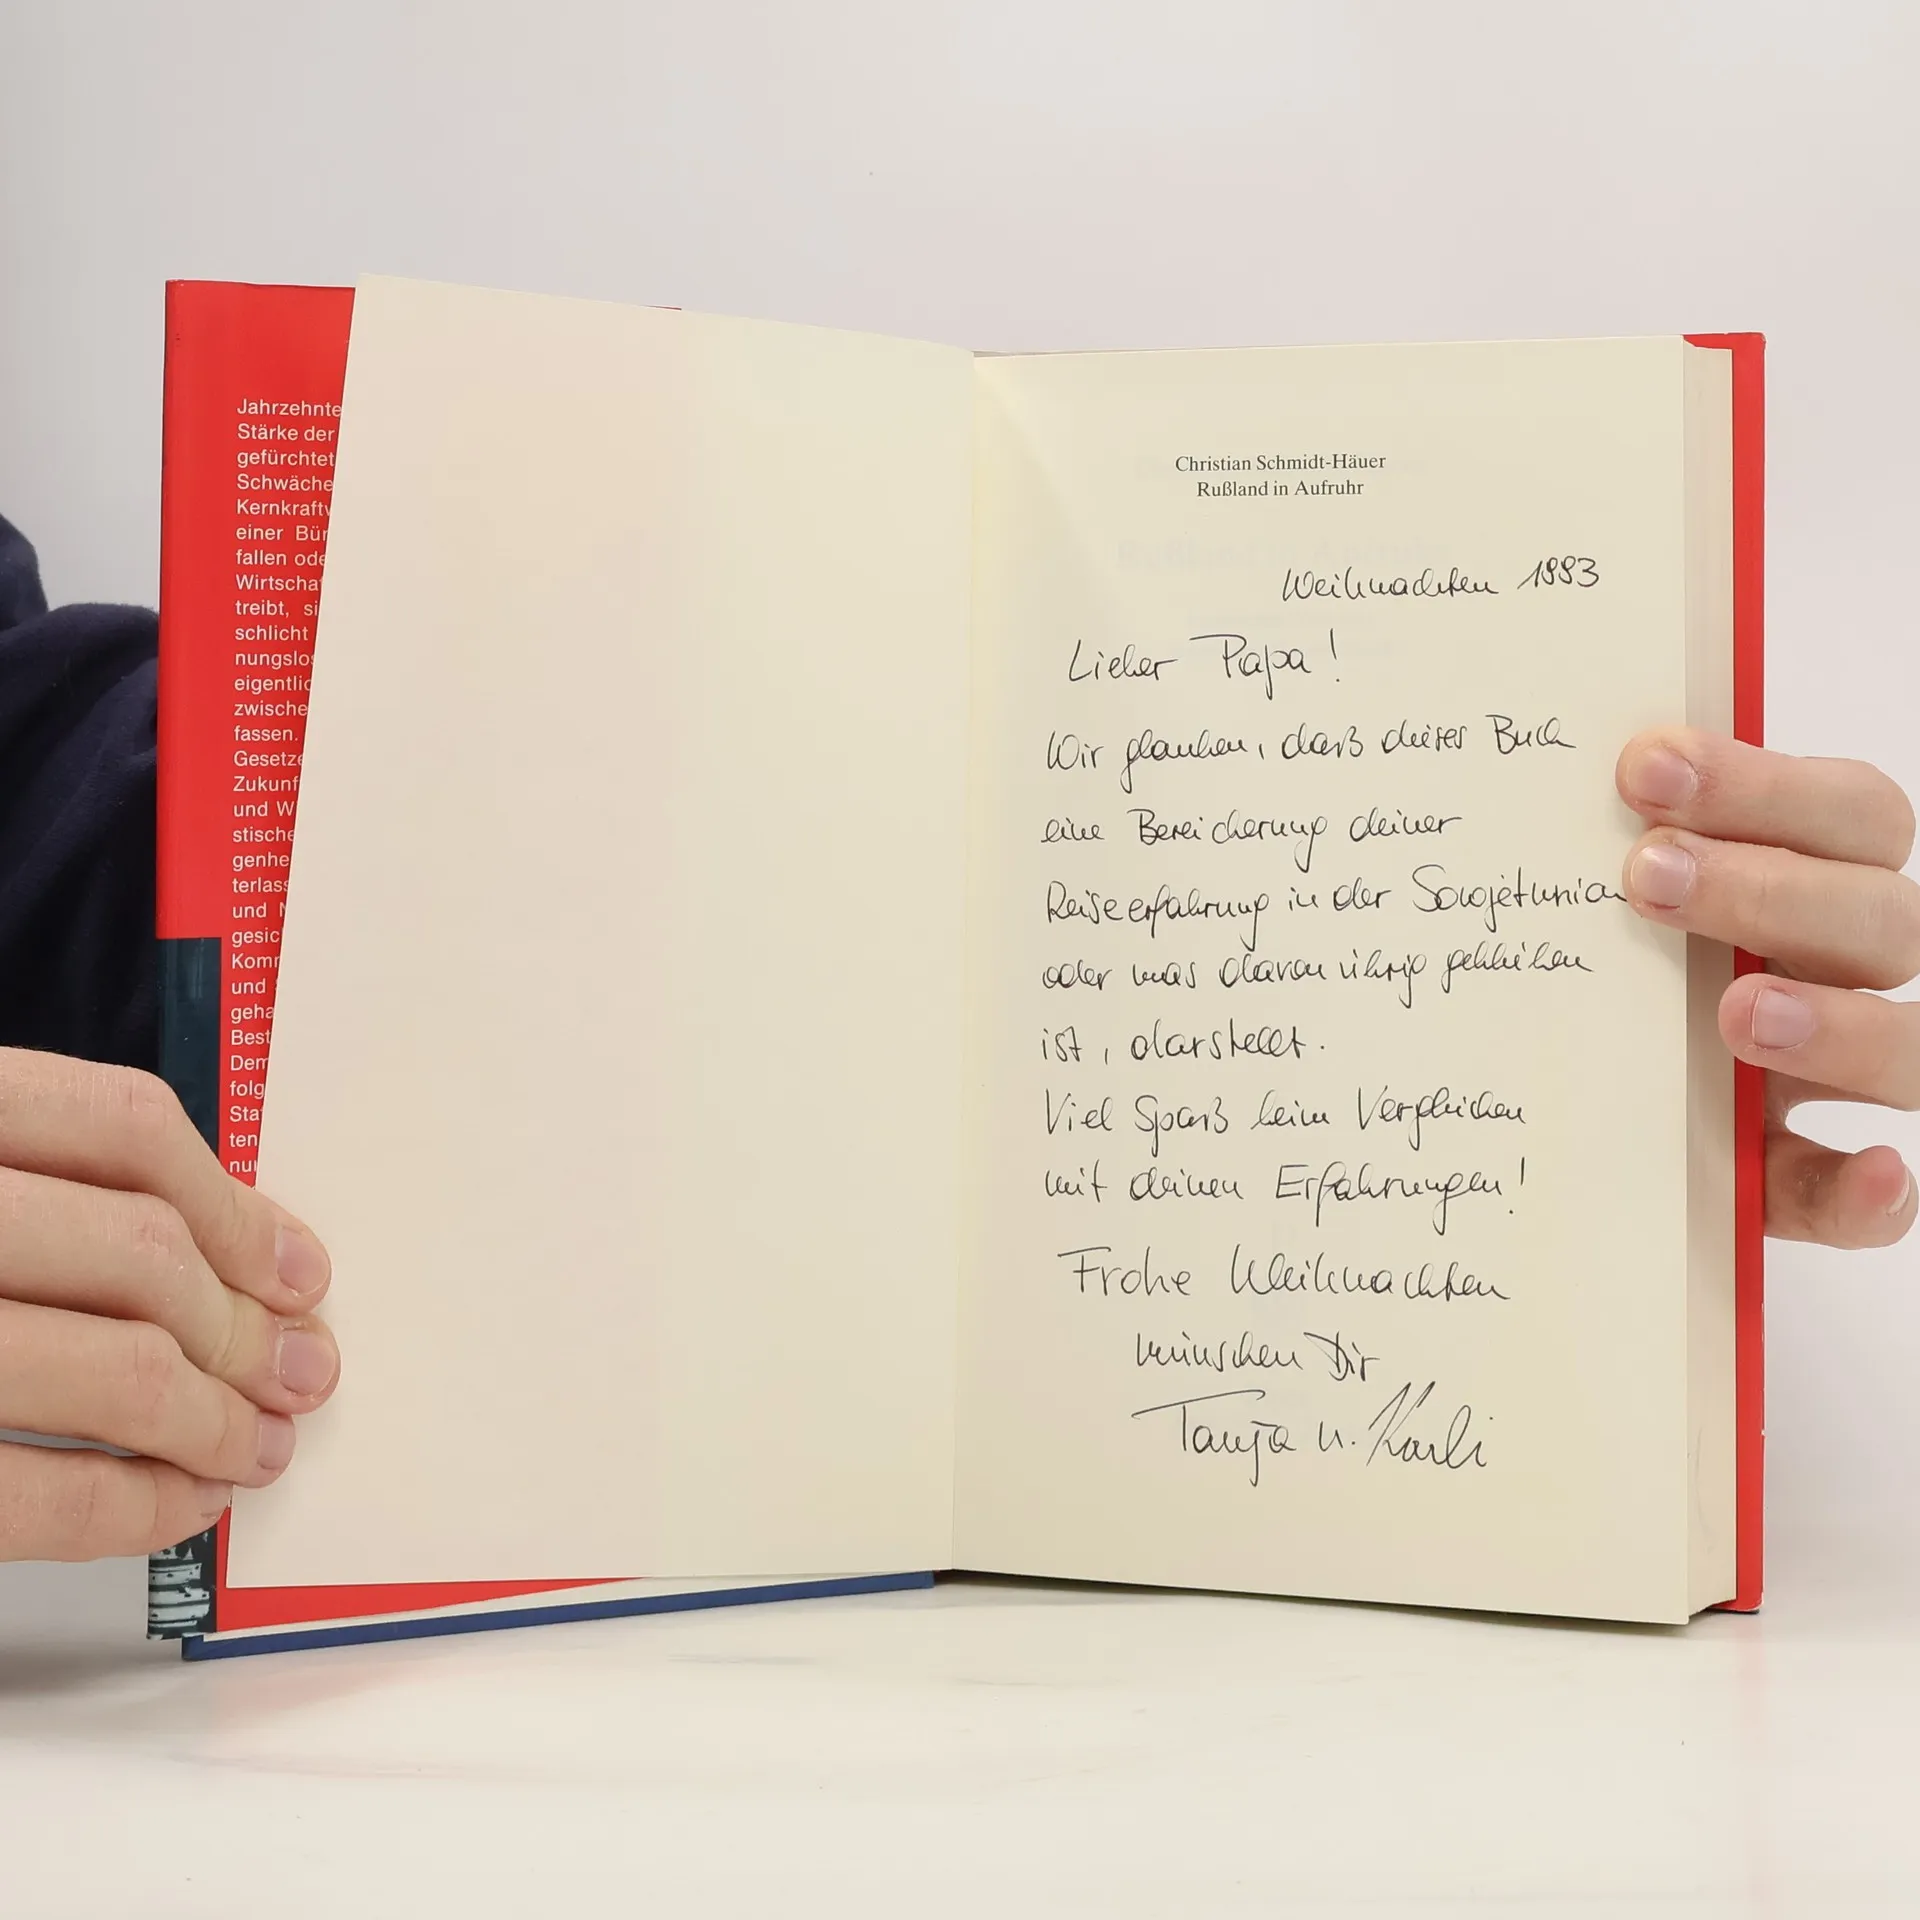 Jahrzehnte
Stärke der
gefürchtet
Schwäche
Kernkraftw
einer Bür
fallen ode
Wirtscha
treibt, si
schlicht
nungslos
eigentlic
zwische
fassen.
Gesetze
Zukunf
und W
stische
genhe
terlass
und N
gesic
Komm
und
geha
Best
Dem
folg
Sta
ten
nu
Christian Schmidt-Häuer
Rußland in Aufruhr
Weihnachten 1993
Lieber Papa!
Wir glauben, daß dieses Buch
eine Bereicherung deiner
Reiseerfahrung in der Sowjetunion
oder was davon übrig geblieben
ist, darstellt.
Viel Spaß beim Vergleichen
mit deinen Erfahrungen!
Frohe Weihnachten
wünschen Dir
Tanja u. Karli